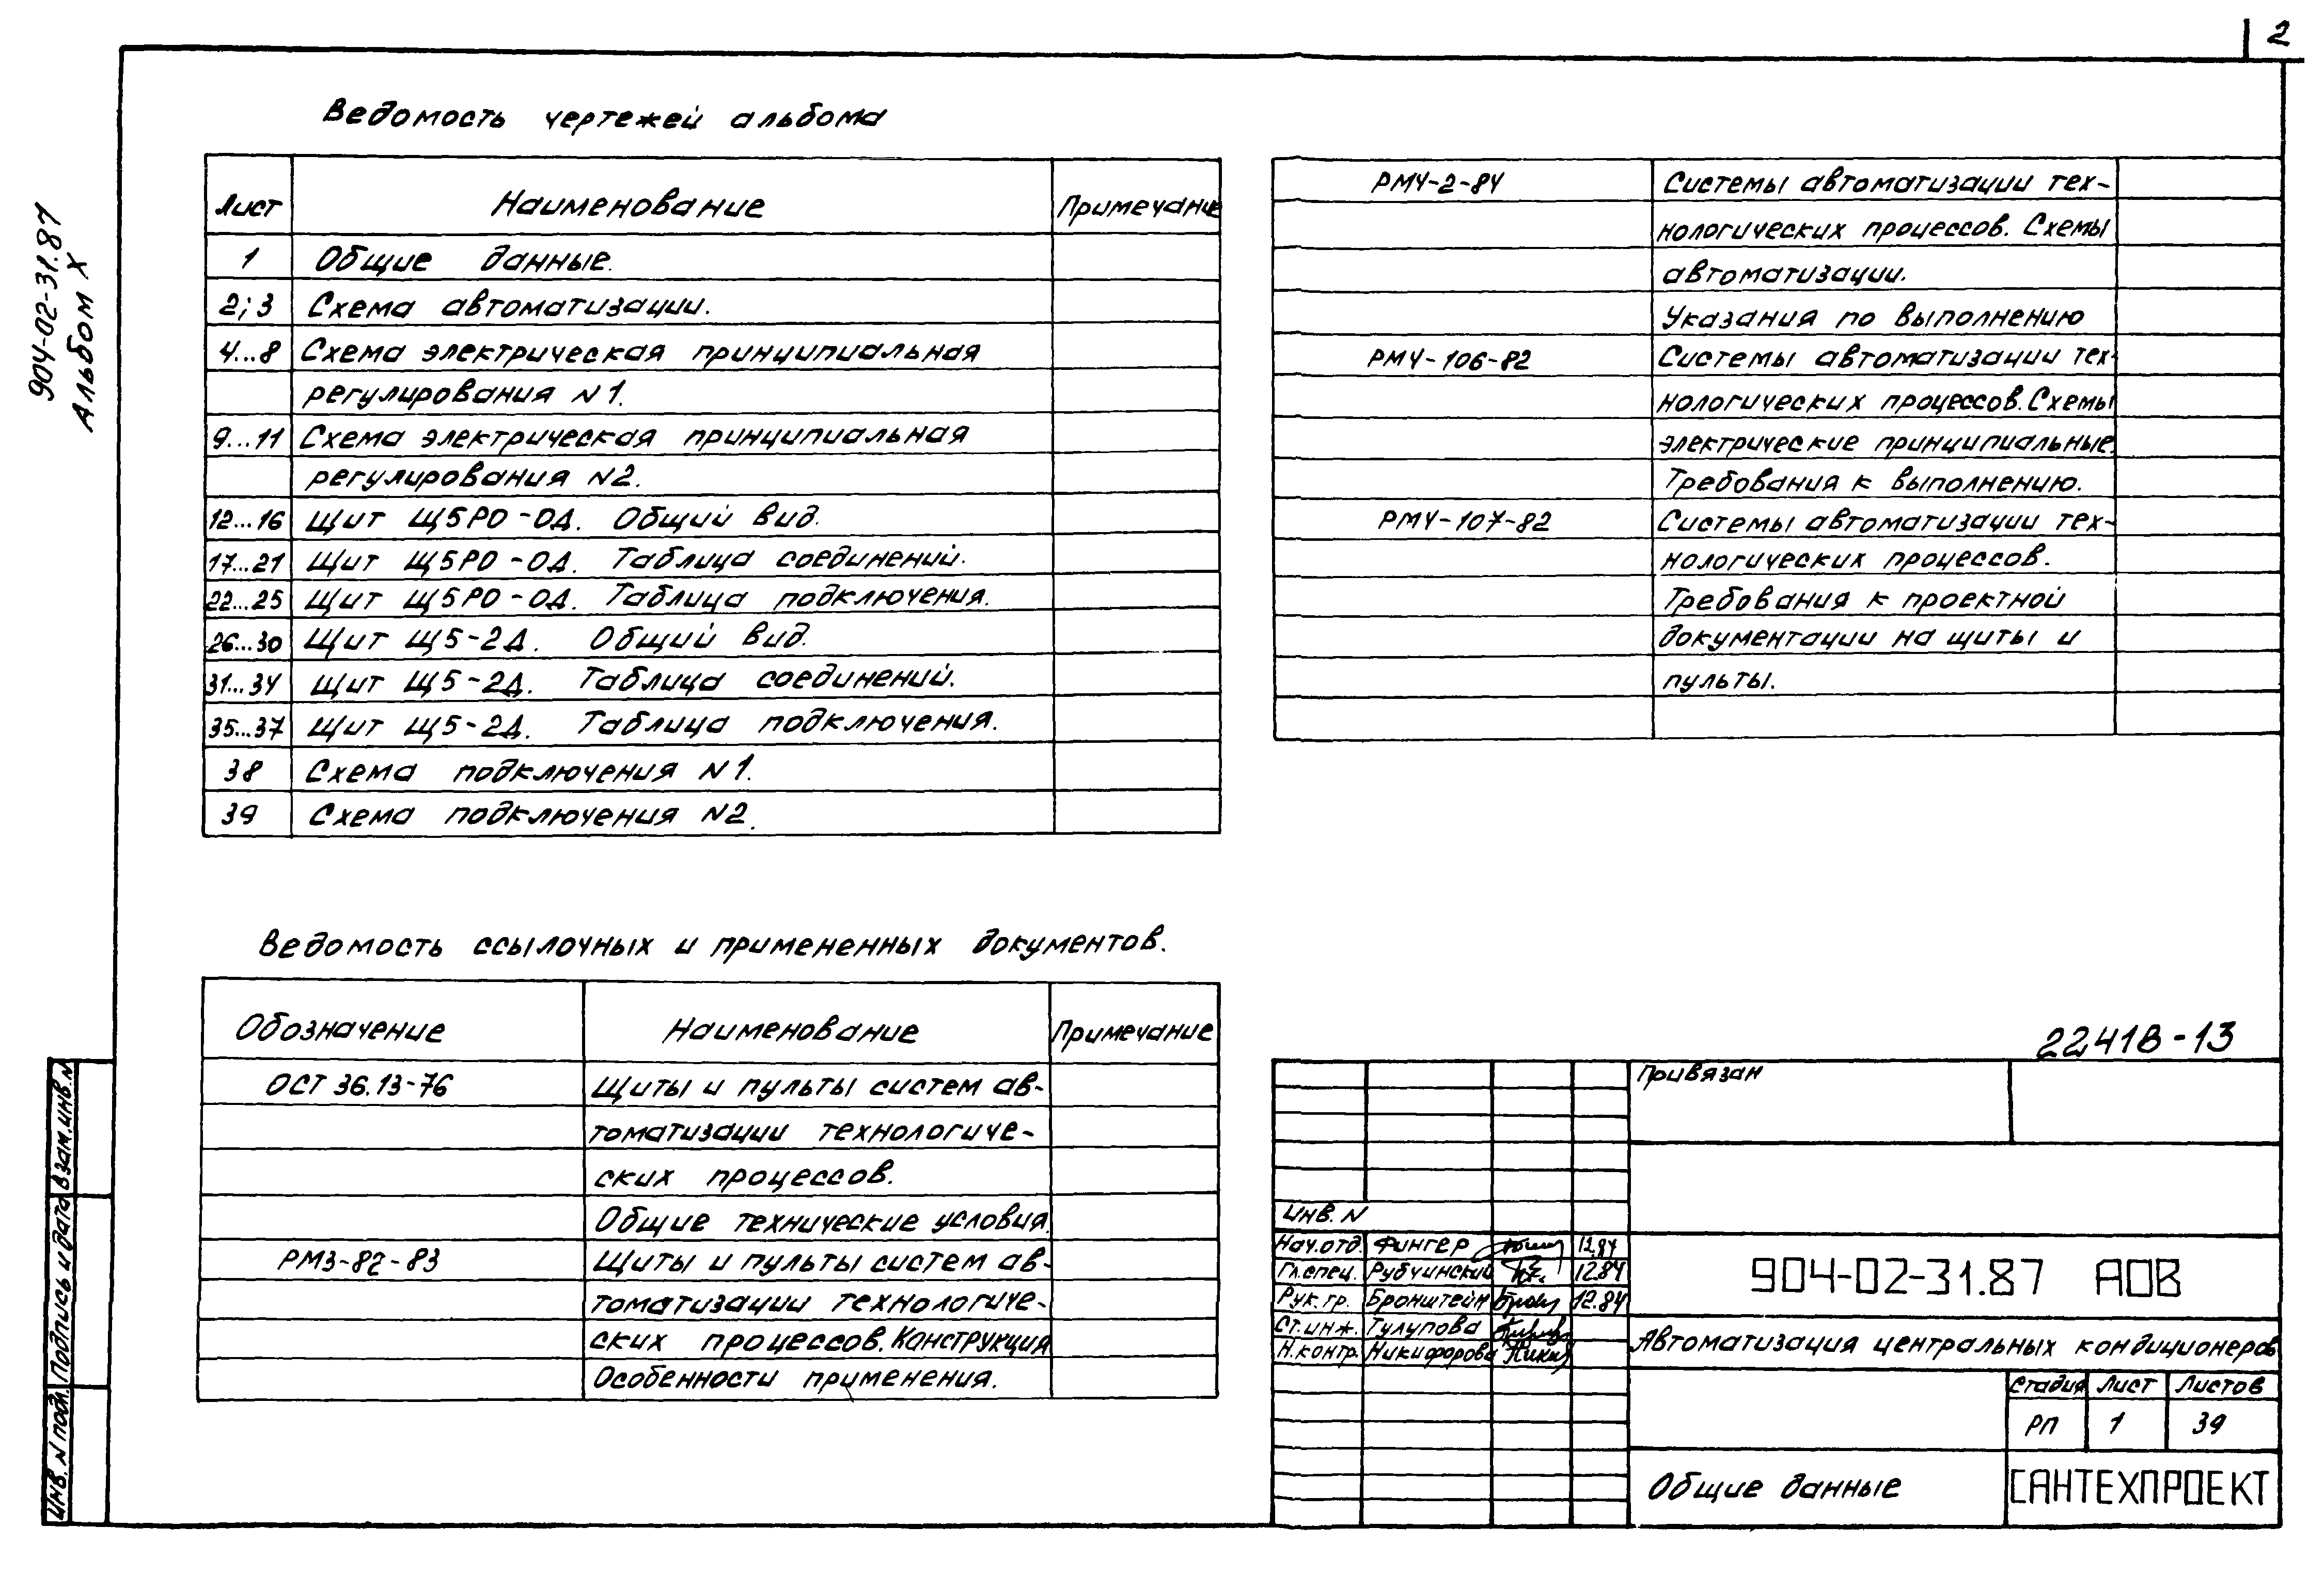 2
904-02-31.87
Альбом X
Ведомость чертежей альбома
Лист Наименование Примечание
1 Общие данные.
2; 3 Схема автоматизации.
4...8 Схема электрическая принципиальная
регулирования N1.
9...11 Схема электрическая принципиальная
регулирования N2.
12...16 Щит Щ5РО-ОД. Общий вид.
17...21 Щит Щ5РО-ОД. Таблица соединений.
22...25 Щит Щ5РО-ОД. Таблица подключения.
26...30 Щит Щ5-2Д. Общий вид.
31...34 Щит Щ5-2Д. Таблица соединений.
35...37 Щит Щ5-2Д. Таблица подключения.
38 Схема подключения N1.
39 Схема подключения N2.
Ведомость ссылочных и примененных документов.
Обозначение Наименование Примечание
ОСТ 36.13-76 Щиты и пульты систем ав-
томатизации технологиче-
ских процессов.
Общие технические условия.
РМ3-82-83 Щиты и пульты систем ав-
томатизации технологиче-
ских процессов. Конструкция
Особенности применения.
РМ4-2-84 Системы автоматизации тех-
нологических процессов. Схемы
автоматизации.
Указания по выполнению
РМ4-106-82 Системы автоматизации тех-
нологических процессов. Схемы
электрические принципиальные.
Требования к выполнению.
РМ4-107-82 Системы автоматизации тех-
нологических процессов.
Требования к проектной
документации на щиты и
пульты.
22418-13
Привязан
Инв. N
Нач.отд. Фингер 12.84
Гл.спец. Рубчинский 12.84
Рук.гр. Бронштейн 12.84
Ст.инж. Тулупова
Н.контр. Никифорова
904-02-31.87 АОВ
Автоматизация центральных кондиционеров
Стадия Лист Листов
РП 1 39
Общие данные
САНТЕХПРОЕКТ
Взам.инв.N
Подпись и дата
Инв. N подл.